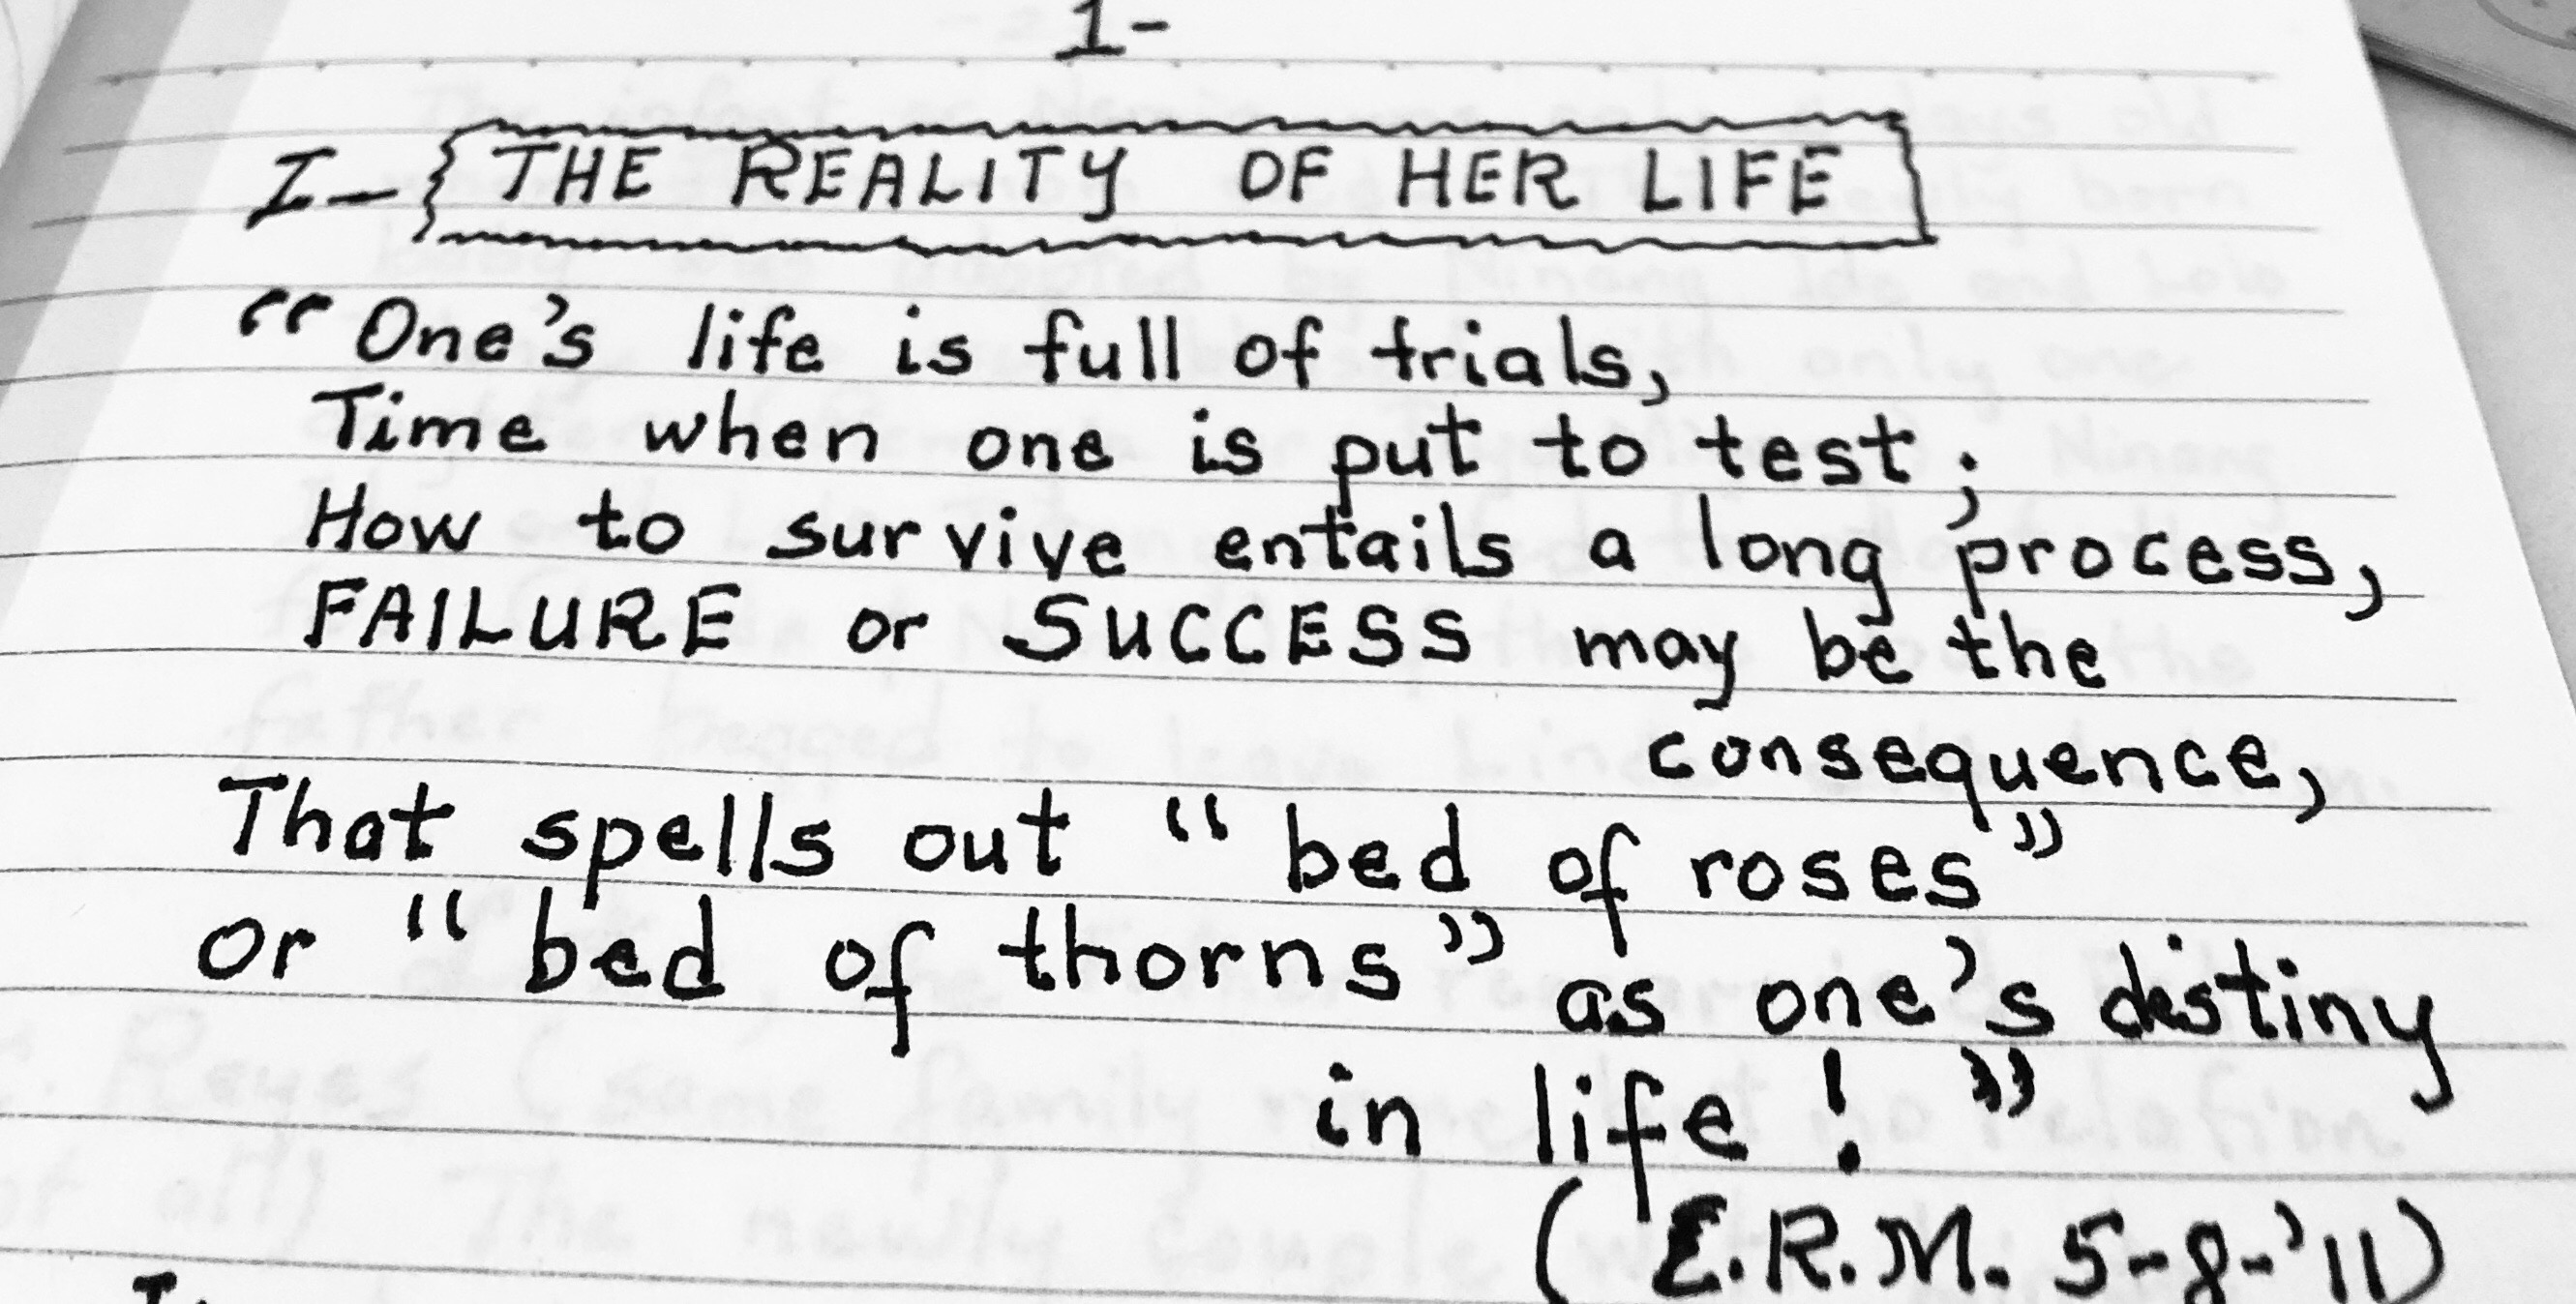 1-
I- THE REALITY OF HER LIFE
"One's life is full of trials,
Time when one is put to test;
How to survive entails a long process,
FAILURE or SUCCESS may be the
consequence,
That spells out "bed of roses"
or "bed of thorns" as one's destiny
in life!"
(E.R.M. 5-8-'11)